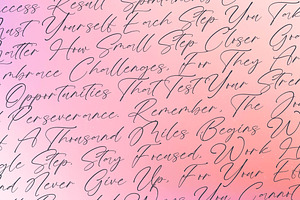 ccess Result Spontan
ust Yourself Each Step You Tak
atter How Small Step Closer Gra
mbrace Challenges, For They Ar
Opportunities That Test Your Stren
Perseverance. Remember, The Jo
f A Thousand Miles Begins W
gle Step. Stay Focused, Work H
nd Never Give Up. For Your Eff
You Cannot